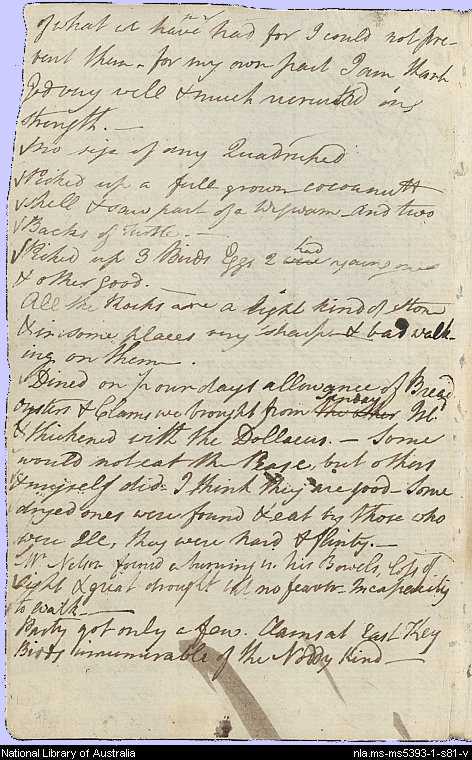 of what we have had for I could not pre-
vent them - for my own part I am thank
God very well & much recruited in
strength. -
no sign of any Quadruped
Picked up a full grown cocoanutt
shell & saw part of a Wigwam and two
Backs of Turtle. -
Picked up 3 Birds Eggs 2 had young ones
& other good. -
All the Rocks are a light kind of Ston
& in some places very sharp & bad walk-
ing on them.
Dined on our days allowance of Bread
oysters & Clams we brought from Sunday Isl
& thickened with the Dollacus. - Some
would not eat the Pease, but others
& myself did - I think they are good - Some
dryed ones were found & eat by those who
were Ill, they were hard & flinty. -
Mr. Nelson found a burning in his Bowels, Loss of
Sight & great drought but no fever - Incapacity
to walk. -
Party got only a few Clams at East Key
Birds innumerable of the Noddy Kind -
National Library of Australia
nla.ms-ms5393-1-s81-v